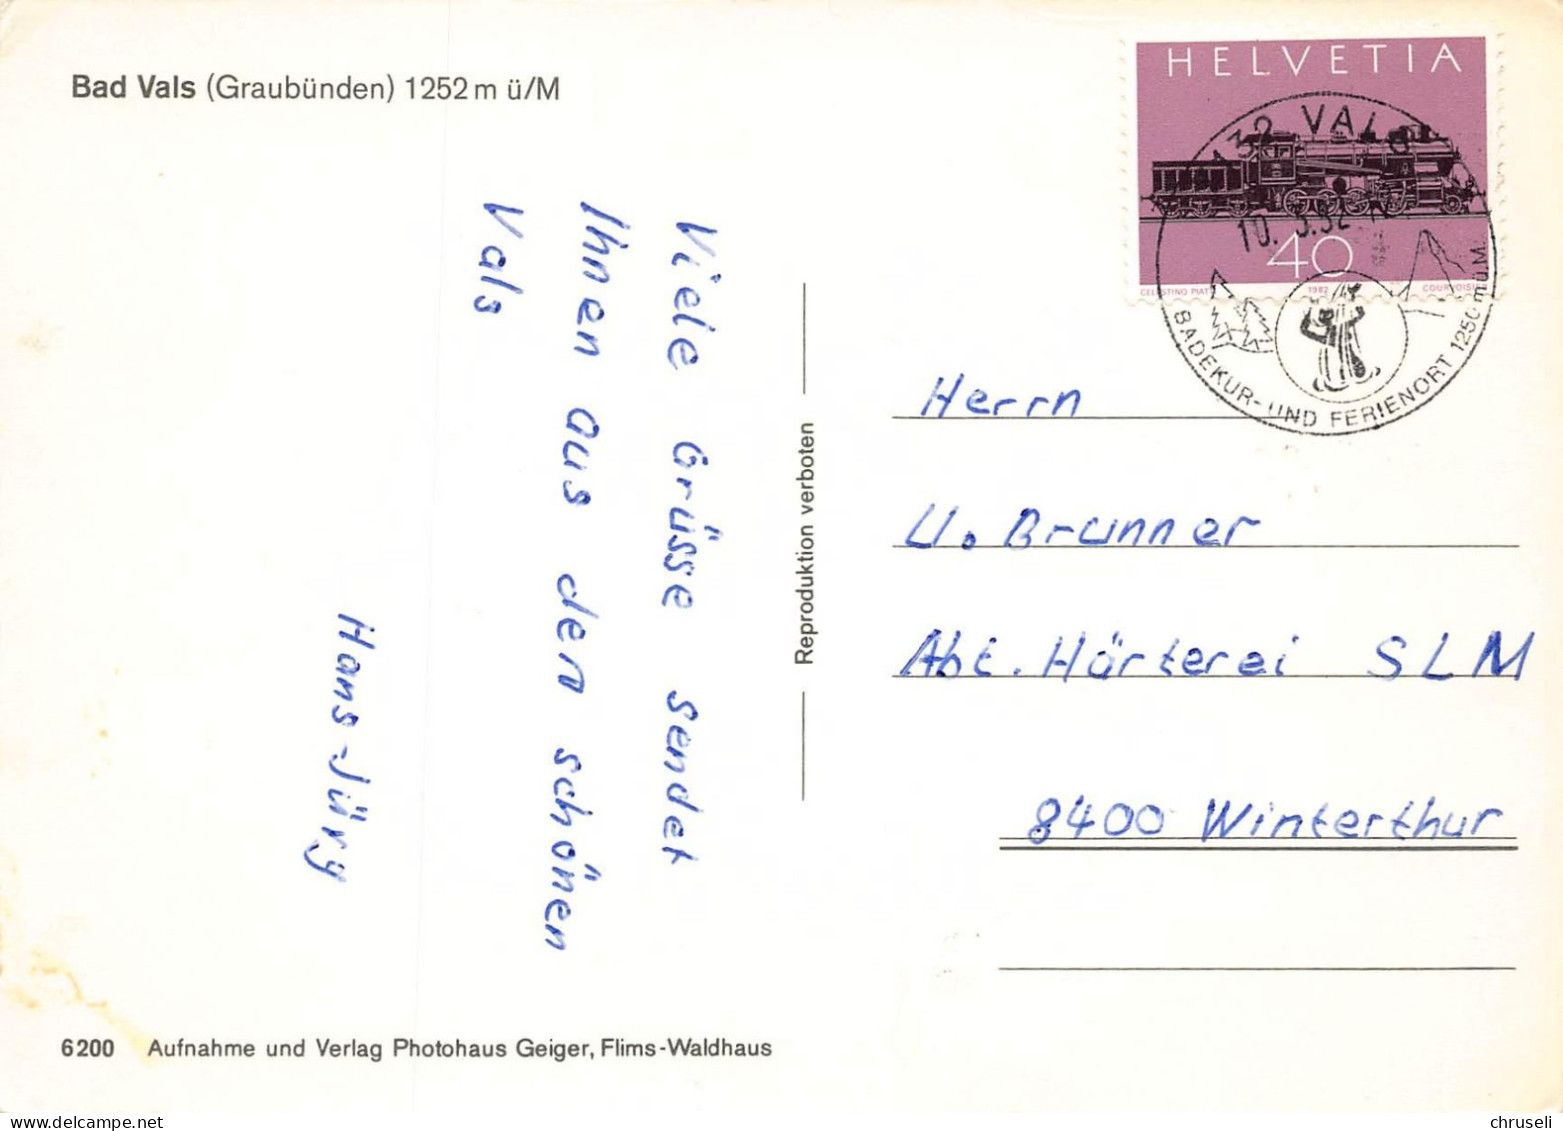 Bad Vals (Graubünden) 1252 m ü/M
HELVETIA
40
CELESTINO PIATTI 1982 COURVOISIER
7132 VALS
10. 3.82
BADEKUR- UND FERIENORT 1250 m ü. M.
Viele Grüsse sendet
Ihnen aus den schönen
Vals
Hans-Jürg
Reproduktion verboten
Herrn
U. Brunner
Abt. Härterei SLM
8400 Winterthur
6200 Aufnahme und Verlag Photohaus Geiger, Flims-Waldhaus
www.delcampe.net
chruseli